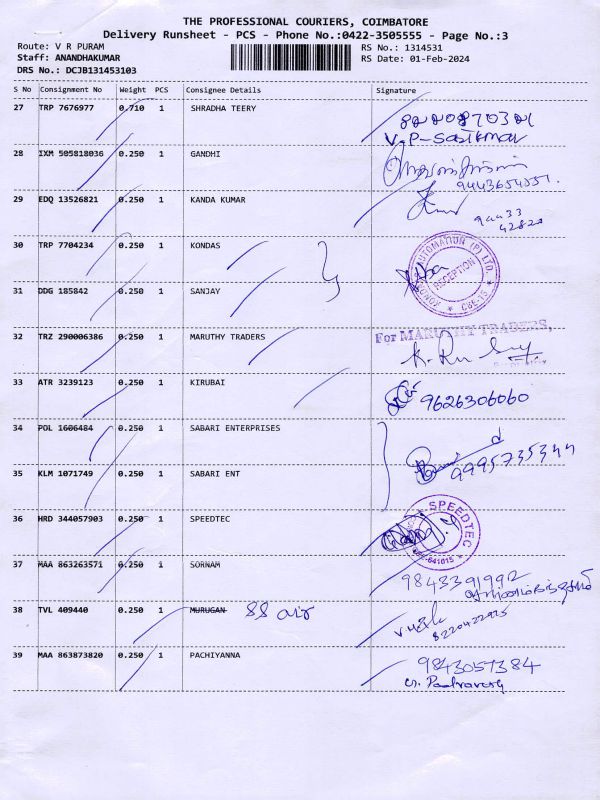 THE PROFESSIONAL COURIERS, COIMBATORE
Delivery Runsheet - PCS - Phone No.:0422-3505555 - Page No.:3
Route: V R PURAM
RS No.: 1314531
Staff: ANANDHAKUMAR
RS Date: 01-Feb-2024
DRS No.: DCJB131453103
S No Consignment No Weight PCS Consignee Details Signature
27 TRP 7676977 0.710 1 SHRADHA TEERY
V. P-Sasikmar
28 IXM 505818036 0.250 1 GANDHI
29 EDQ 13526821 0.250 1 KANDA KUMAR
94433
42820
30 TRP 7704234 0.250 1 KONDAS
AUTOMATION (P) LTD.
RECEPTION
31 DDG 185842 0.250 1 SANJAY
32 TRZ 290006386 0.250 1 MARUTHY TRADERS
For MARUTHY TRADERS,
33 ATR 3239123 0.250 1 KIRUBAI
9626306060
34 POL 1606484 0.250 1 SABARI ENTERPRISES
35 KLM 1071749 0.250 1 SABARI ENT
9995735344
36 HRD 344057903 0.250 1 SPEEDTEC
SPEEDTEC
641015
37 MAA 863263571 0.250 1 SORNAM
9843391992
38 TVL 409440 0.250 1 MURUGAN
8220422925
39 MAA 863873820 0.250 1 PACHIYANNA
9843057384